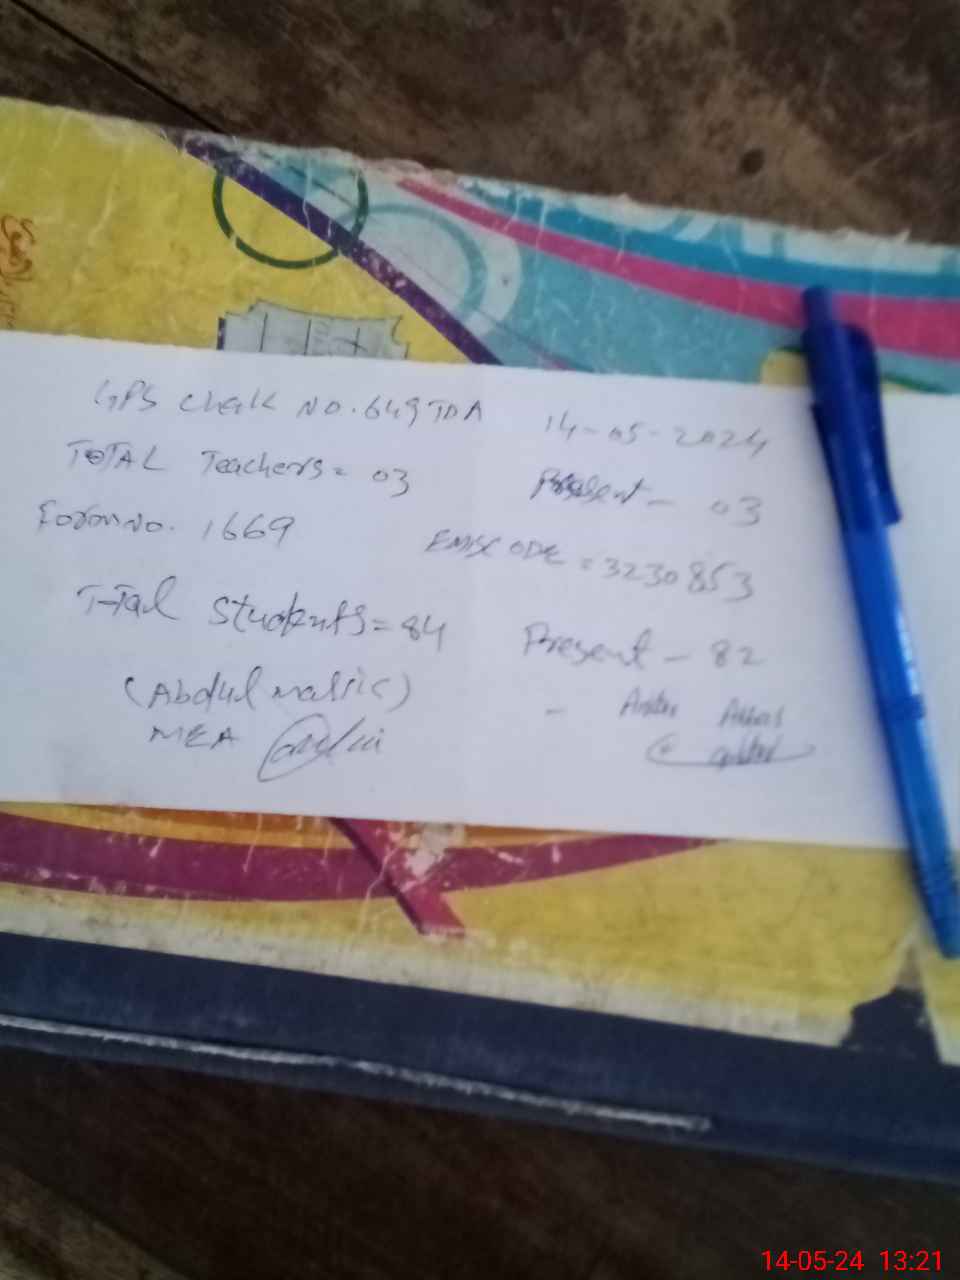 GPS Chak No. 649 TDA 14-05-2024
TOTAL Teachers = 03 Present - 03
Form No. 1669 EMIS CODE = 3230853
T-Tal Students = 84 Present - 82
(Abdul malic)
MEA
14-05-24 13:21